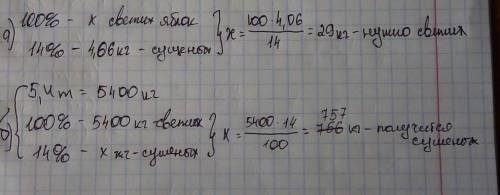 а) 100% - х свежих яблок } х = 100·4,06 / 14 = 29 кг - нужно свежих
14% - 4,66 кг - сушеных
б) { 5,4 т = 5400 кг
100% - 5400 кг свежих } х = 5400·14 / 100 = 766 757 кг - получится сушеных
14% - х кг - сушеных